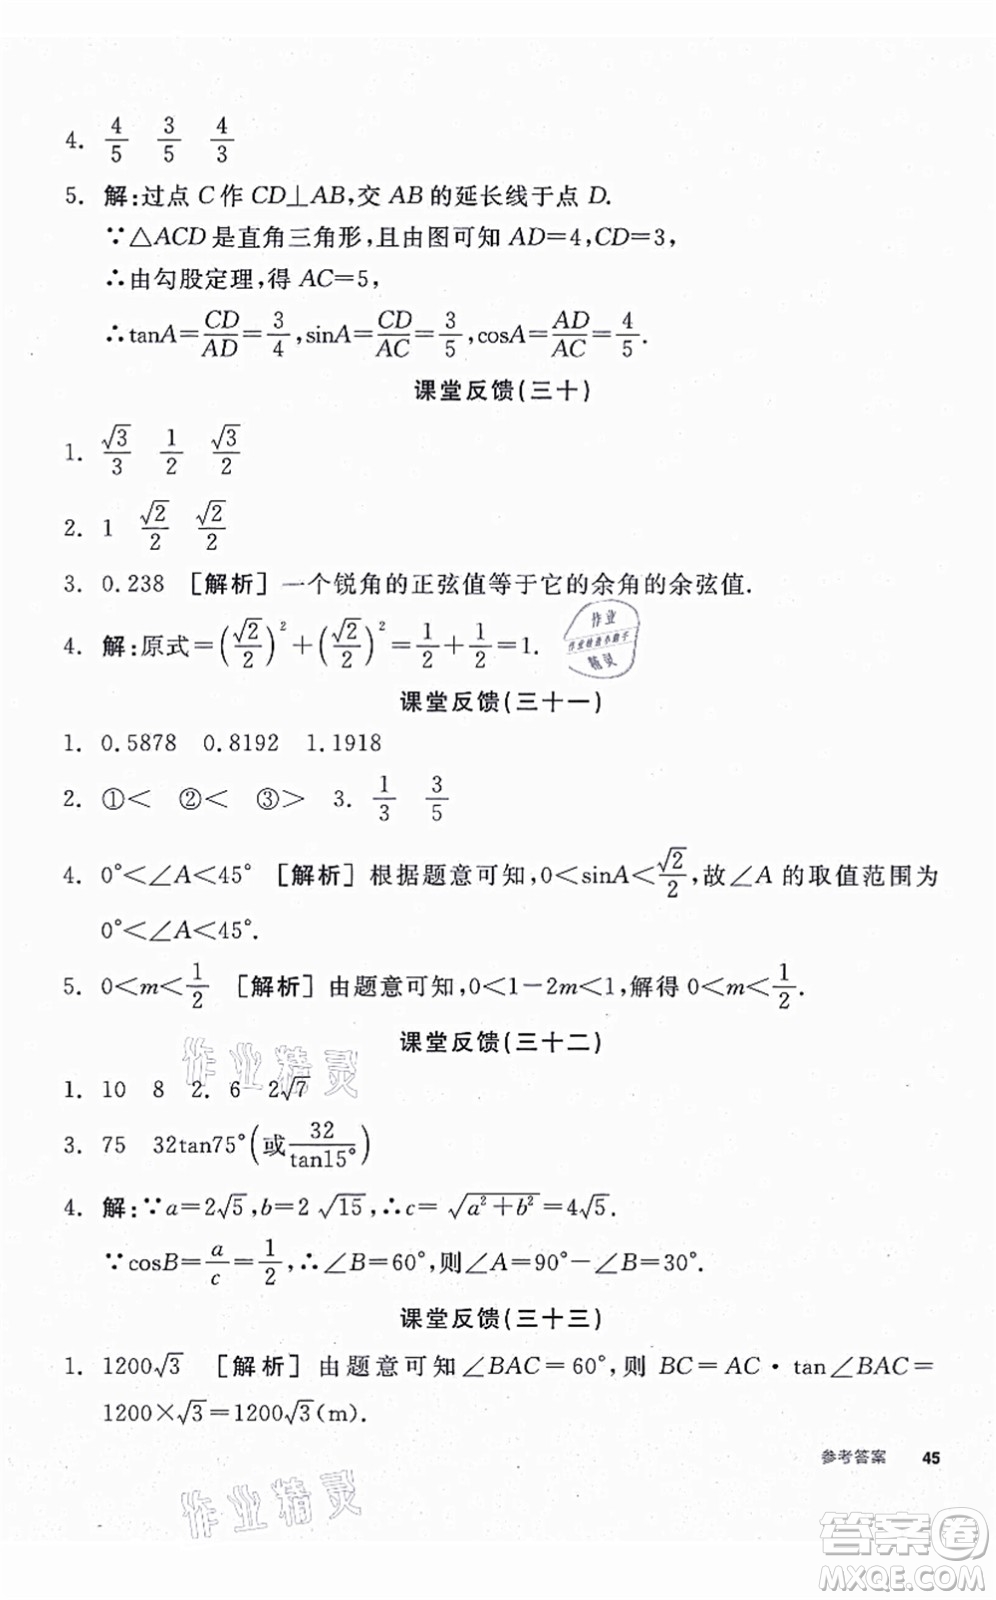 4. 4/5 3/5 4/3
5. 解:过点 C 作 CD⊥AB,交 AB 的延长线于点 D.
∵△ACD 是直角三角形,且由图可知 AD=4,CD=3,
∴由勾股定理,得 AC=5,
∴tanA=CD/AD=3/4,sinA=CD/AC=3/5,cosA=AD/AC=4/5.
课堂反馈(三十)
1. √3/3 1/2 √3/2
2. 1 √2/2 √2/2
3. 0.238 [解析]一个锐角的正弦值等于它的余角的余弦值.
4. 解:原式=(√2/2)²+(√2/2)²=1/2+1/2=1.
作业
作业精灵
课堂反馈(三十一)
1. 0.5878 0.8192 1.1918
2. ①< ②< ③> 3. 1/3 3/5
4. 0°<∠A<45° [解析]根据题意可知,0<sinA<√2/2,故∠A 的取值范围为
0°<∠A<45°.
5. 0<m<1/2 [解析]由题意可知,0<1-2m<1,解得 0<m<1/2.
课堂反馈(三十二)
作业精灵
1. 10 8 2. 6 2√7
3. 75 32tan75°(或32/tan15°)
4. 解:∵a=2√5,b=2√15,∴c=√(a²+b²)=4√5.
∵cosB=a/c=1/2,∴∠B=60°,则∠A=90°-∠B=30°.
课堂反馈(三十三)
1. 1200√3 [解析]由题意可知∠BAC=60°,则 BC=AC·tan∠BAC=
1200×√3=1200√3(m).
参考答案 45
作业精灵
答案圈
MXQE.COM